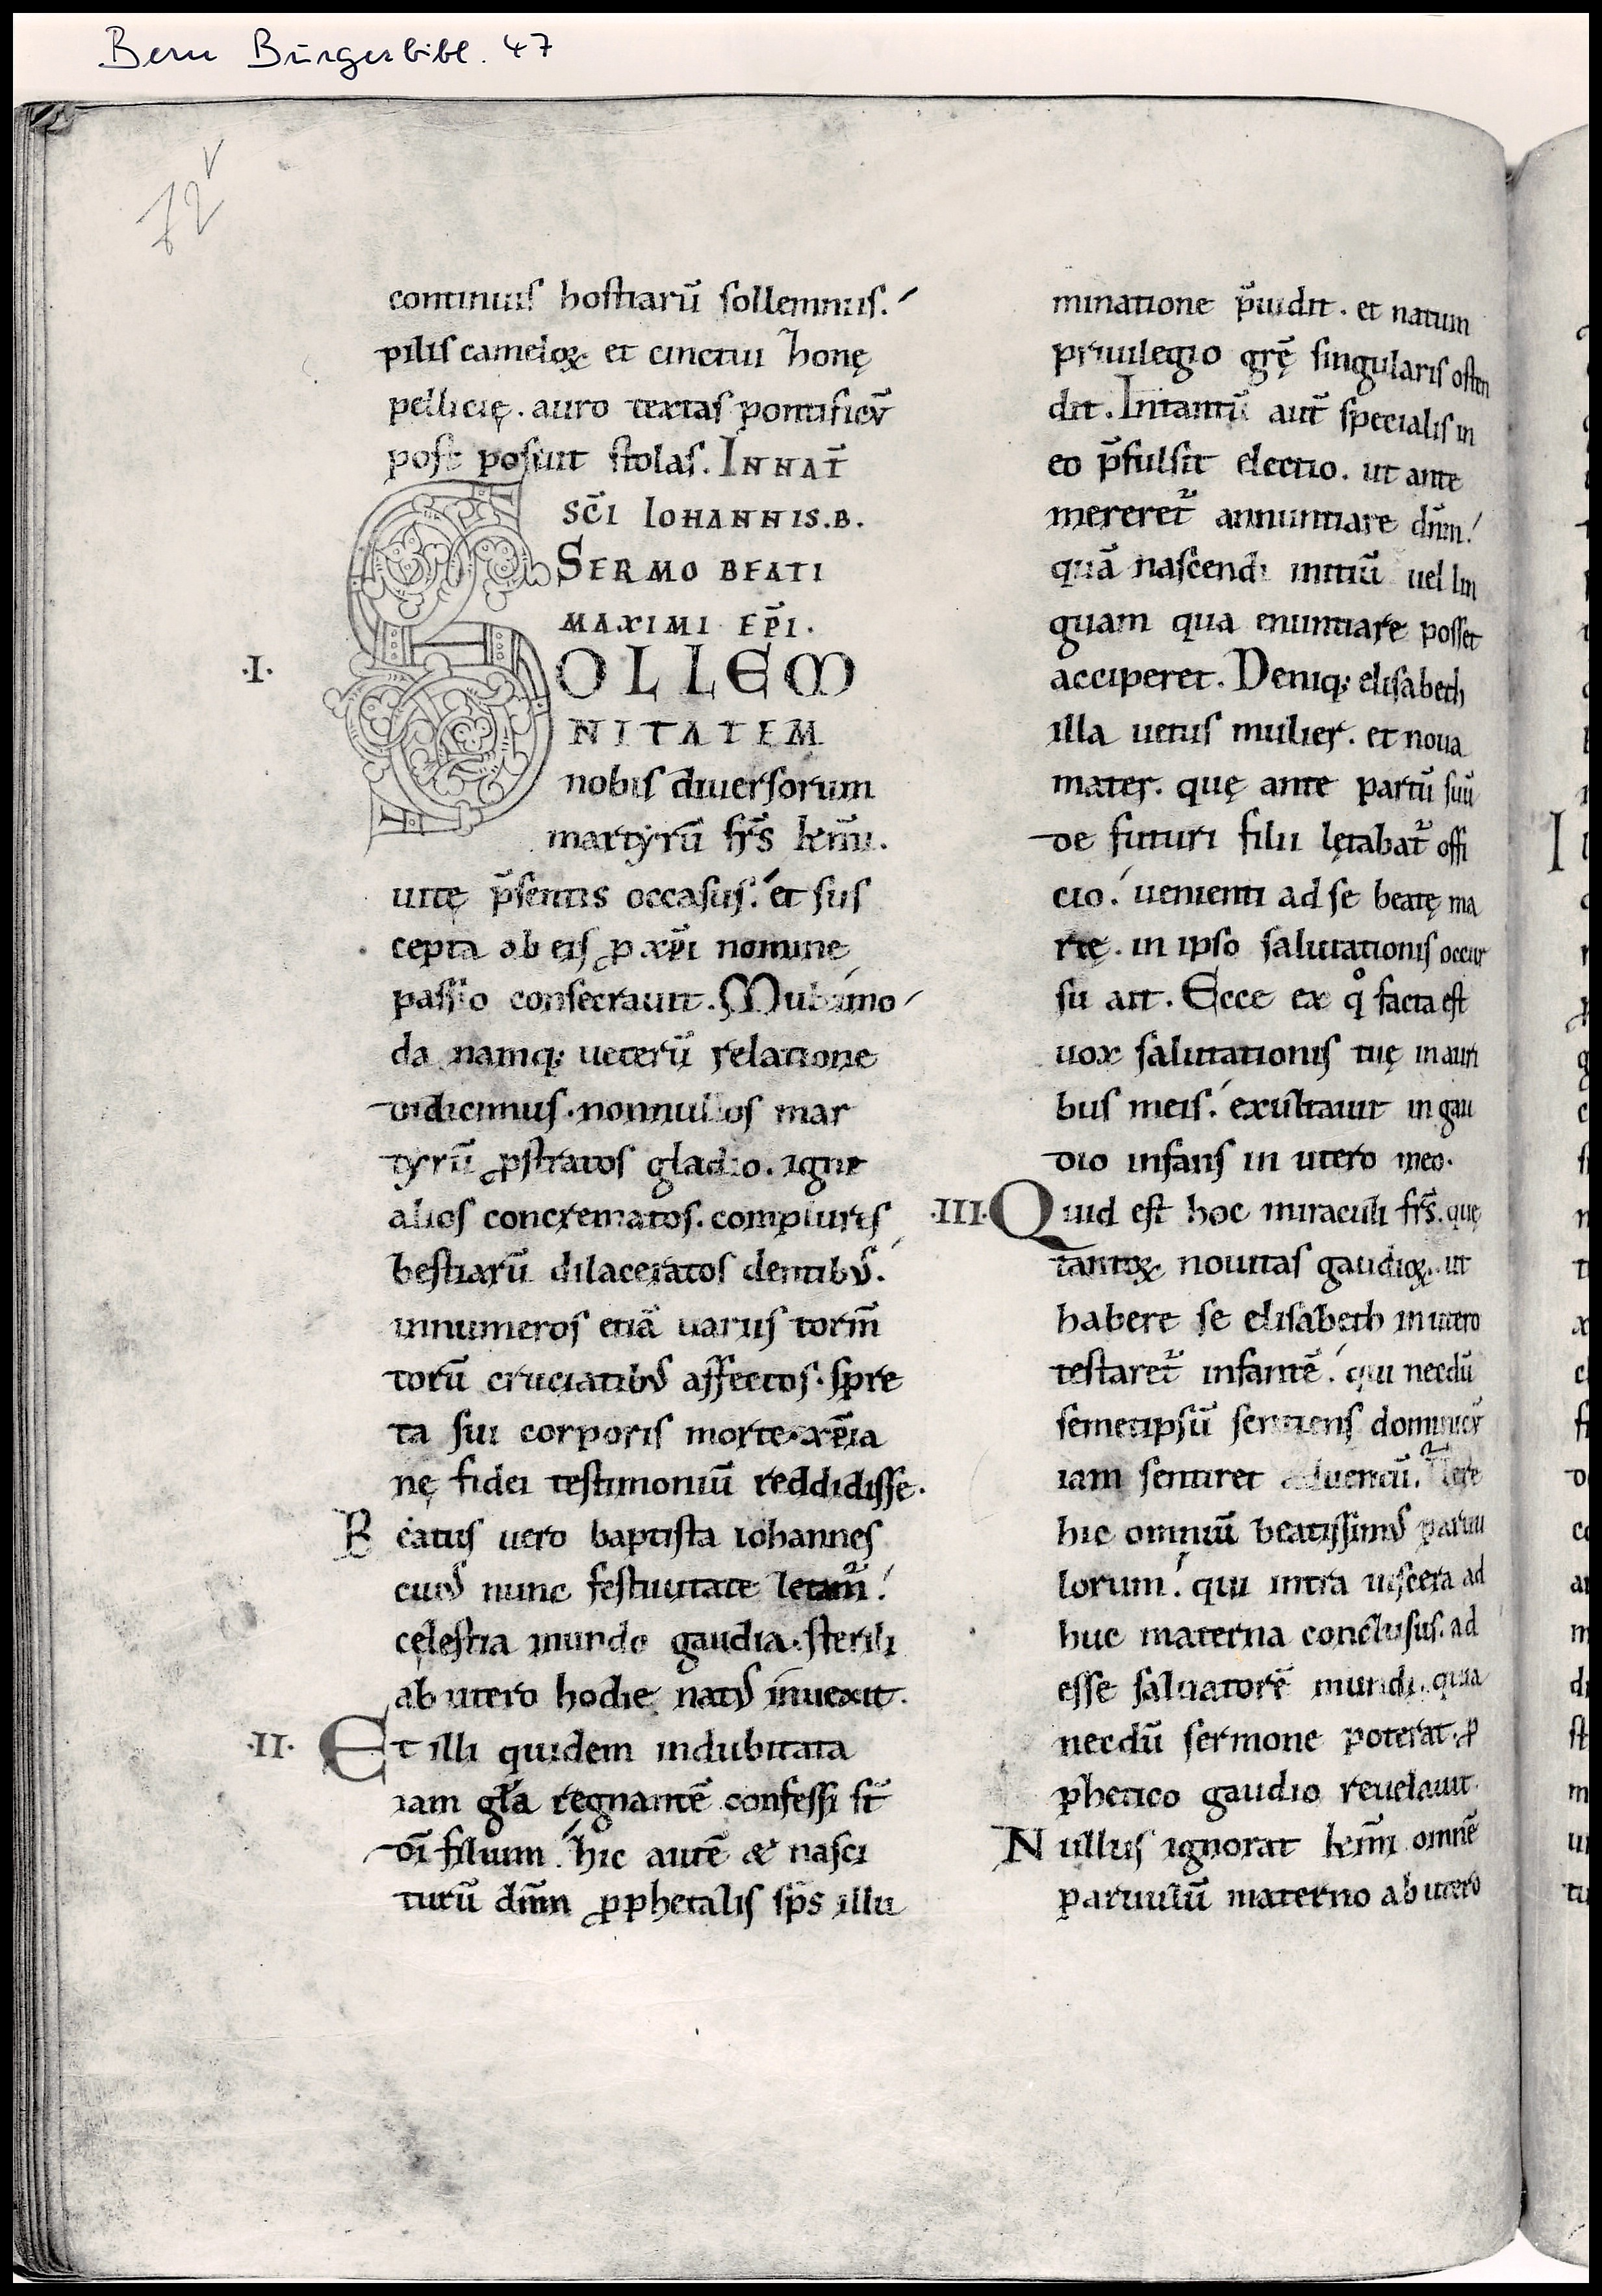 Bern Burgerbibl. 47
72v
continuis hostiarū sollemniis.
pilis cameloꝝ et cinctui honę
pellicię. auro textas pontificū
post posuit stolas. IN NAT̄
SC̄I IOHANNIS.B.
SERMO BEATI
MAXIMI EP̄I.
.I. SOLLEM
NITATEM
nobis diuersorum
martyrū fr̄s km̄i.
uitę p̄sentis occasus. et sus
cepta ab eis ꝓ xp̄i nomine
passio consecrauit. Multimo
da namq; ueterū relatione
didicimus. nonnullos mar
tyrū ꝓstratos gladio. igne
alios concrematos. compluris
bestiarū dilaceratos dentibꝰ.
innumeros etiā uariis torm̄
torū cruciatibꝰ affectos. spre
ta sui corporis morte. xp̄ia
nę fidei testimoniū reddidisse.
Beatus uero baptista iohannes
cuiꝰ nunc festiuitate letam̄.
cęlestia mundo gaudia. sterili
ab utero hodie natꝰ inuexit.
.II. Et illi quidem indubitata
iam gl̄a regnantē confessi st̄
dī filium. hic autē & nasci
turū dn̄m ꝓphetalis sp̄s illu
minatione p̄uidit. et natum
priuilegio gr̄ę singularis osten
dit. Intantū aut̄ specialis in
eo p̄fulsit electio. ut ante
mereret̄ annuntiare dn̄m.
quā nascendi initiū uel lin
guam qua enuntiare posset
acciperet. Deniq; elisabeth
illa uetus mulier. et noua
mater. quę ante partū suū
de futuri filii lętabat̄ offi
cio. uenienti ad se beatę ma
rię. in ipso salutationis occur
su ait. Ecce ex qͦ facta est
uox salutationis tuę in auri
bus meis. exultauit in gau
dio infans in utero meo.
.III. Quid est hoc miraculi fr̄s. quę
tantoꝝ nouitas gaudioꝝ. ut
habere se elisabeth in utero
testaret̄ infantē. qui necdū
semetipsū sentiens dominicū
iam sentiret aduentū. Vere
hic omniū beatissimꝰ paruu
lorum. qui intra uiscera ad
huc materna conclusus. ad
esse saluatorē mundi. quia
necdū sermone poterat. ꝓ
phetico gaudio reuelauit.
Nullus ignorat km̄i omnē
paruulū materno ab utero